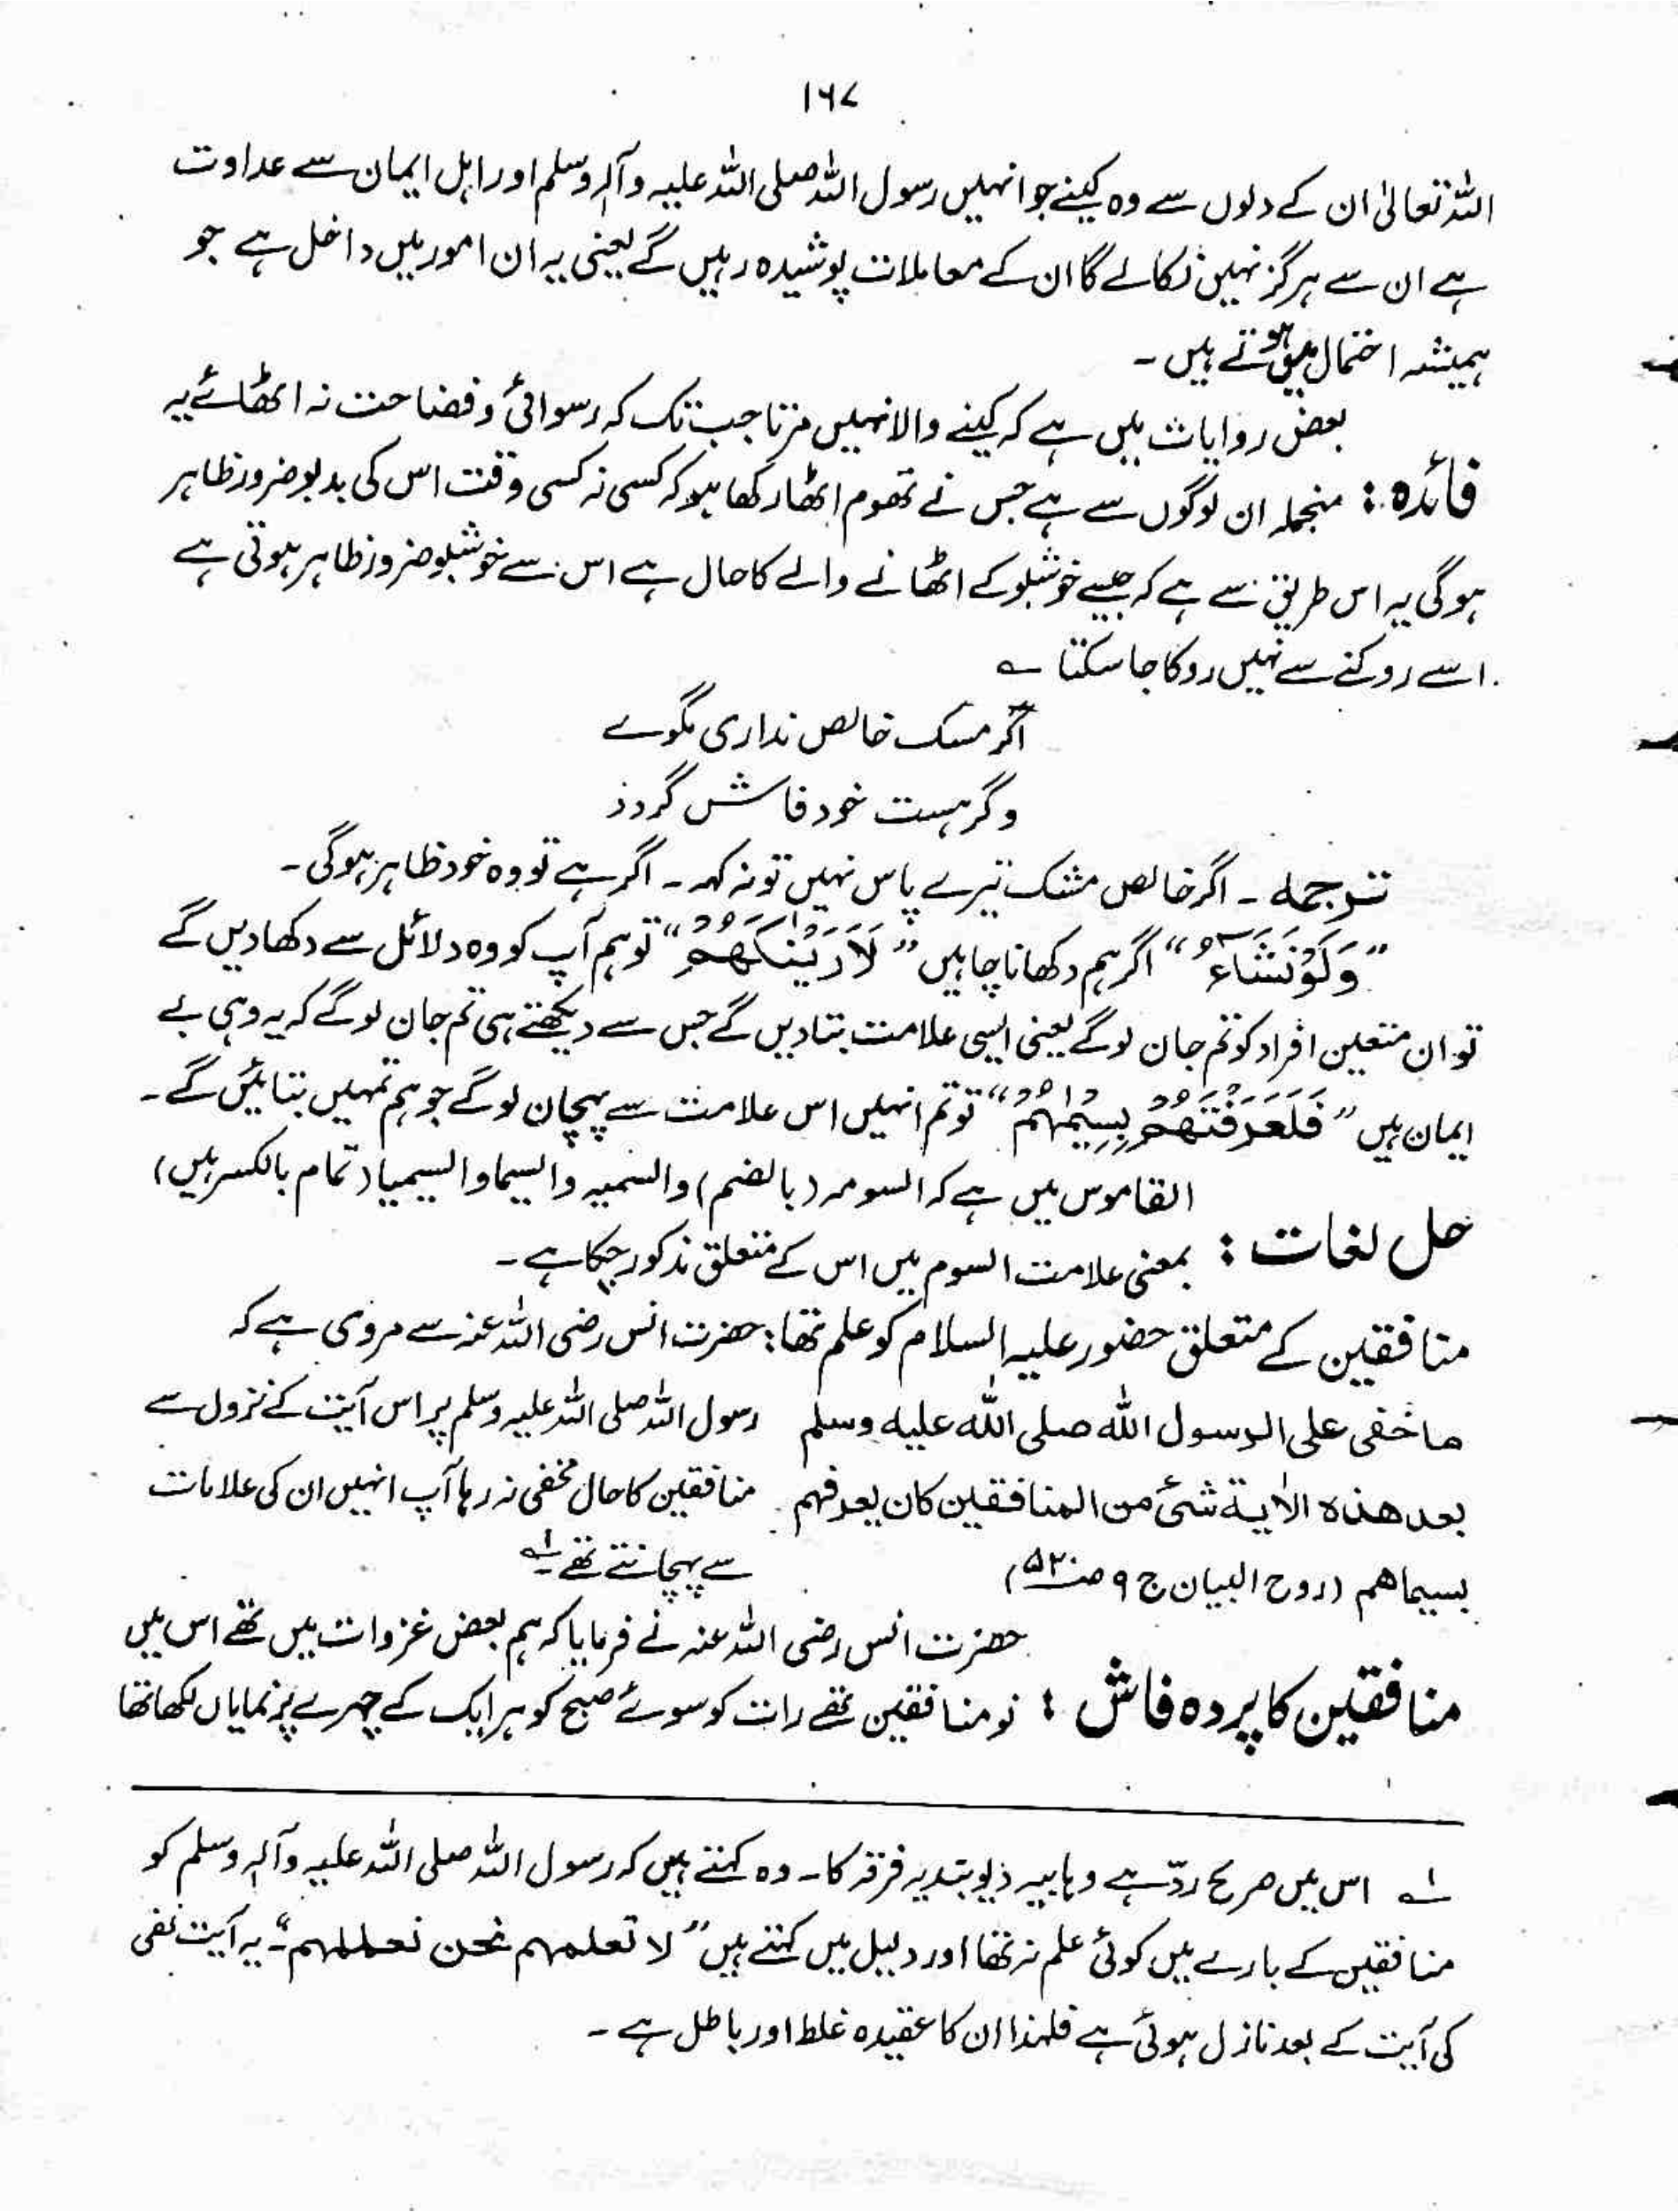 ۱۶۷
اللہ تعالیٰ ان کے دلوں سے وہ کینے جو انہیں رسول اللہ صلی اللہ علیہ وآلہ وسلم اور اہل ایمان سے عداوت
ہے ان سے ہرگز نہیں نکالے گا ان کے معاملات پوشیدہ رہیں گے یعنی یہ ان امور میں داخل ہے جو
ہمیشہ احتمال میں ہوتے ہیں ۔
بعض روایات میں ہے کہ کینے والا نہیں مرتا جب تک کہ رسوائی و فضاحت نہ اٹھائے یہ
فائدہ : منجملہ ان لوگوں سے ہے جس نے تھوم اٹھا رکھا ہو کہ کسی نہ کسی وقت اس کی بدبو ضرور ظاہر
ہو گی یہ اس طریق سے ہے کہ جیسے خوشبو کے اٹھانے والے کا حال ہے اس سے خوشبو ضرور ظاہر ہوتی ہے
اسے روکنے سے نہیں روکا جا سکتا ؎
اگر مسک خالص نداری مگوے
وگر ہست خود فاش گردد
ترجمہ ۔ اگر خالص مشک تیرے پاس نہیں تو نہ کہہ ۔ اگر ہے تو وہ خود ظاہر ہو گی ۔
”وَلَوْ نَشَآءُ“ اگر ہم دکھانا چاہیں ”لَاَرَیْنٰکَھُمْ“ تو ہم آپ کو وہ دلائل سے دکھا دیں گے
تو ان متعین افراد کو تم جان لو گے یعنی ایسی علامت بتا دیں گے جس سے دیکھتے ہی تم جان لو گے کہ یہ وہی بے
ایمان ہیں ”فَلَعَرَفْتَھُمْ بِسِیْمٰہُمْ“ تو تم انہیں اس علامت سے پہچان لو گے جو ہم تمہیں بتائیں گے ۔
القاموس میں ہے کہ السومہ (بالضم) والسمیہ والسیما والسیمیا (تمام بالکسر ہیں)
حل لغات : بمعنی علامت السوم میں اس کے متعلق مذکور چکا ہے ۔
منافقین کے متعلق حضور علیہ السلام کو علم تھا : حضرت انس رضی اللہ عنہ سے مروی ہے کہ
ما خفی علی الرسول اللہ صلی اللہ علیہ وسلم رسول اللہ صلی اللہ علیہ وسلم پر اس آیت کے نزول سے
بعد ھذہ الاٰیۃ شئ من المنافقین کان یعرفہم منافقین کا حال مخفی نہ رہا آپ انہیں ان کی علامات
بسیماھم (روح البیان ج ۹ ص ۵۲۰) سے پہچانتے تھے ۔ ؂۱
حضرت انس رضی اللہ عنہ نے فرمایا کہ ہم بعض غزوات میں تھے اس میں
منافقین کا پردہ فاش : نو منافقین تھے رات کو سوئے صبح کو ہر ایک کے چہرے پر نمایاں لکھا تھا
؂۱ اس میں صریح ردّ ہے وہابیہ دیوبندیہ فرقہ کا ۔ وہ کہتے ہیں کہ رسول اللہ صلی اللہ علیہ وآلہ وسلم کو
منافقین کے بارے میں کوئی علم نہ تھا اور دلیل میں کہتے ہیں ”لا تعلمہم نحن نعلمہم“ ۔ یہ آیت نفی
کی آیت کے بعد نازل ہوئی ہے فلہٰذا ان کا عقیدہ غلط اور باطل ہے ۔